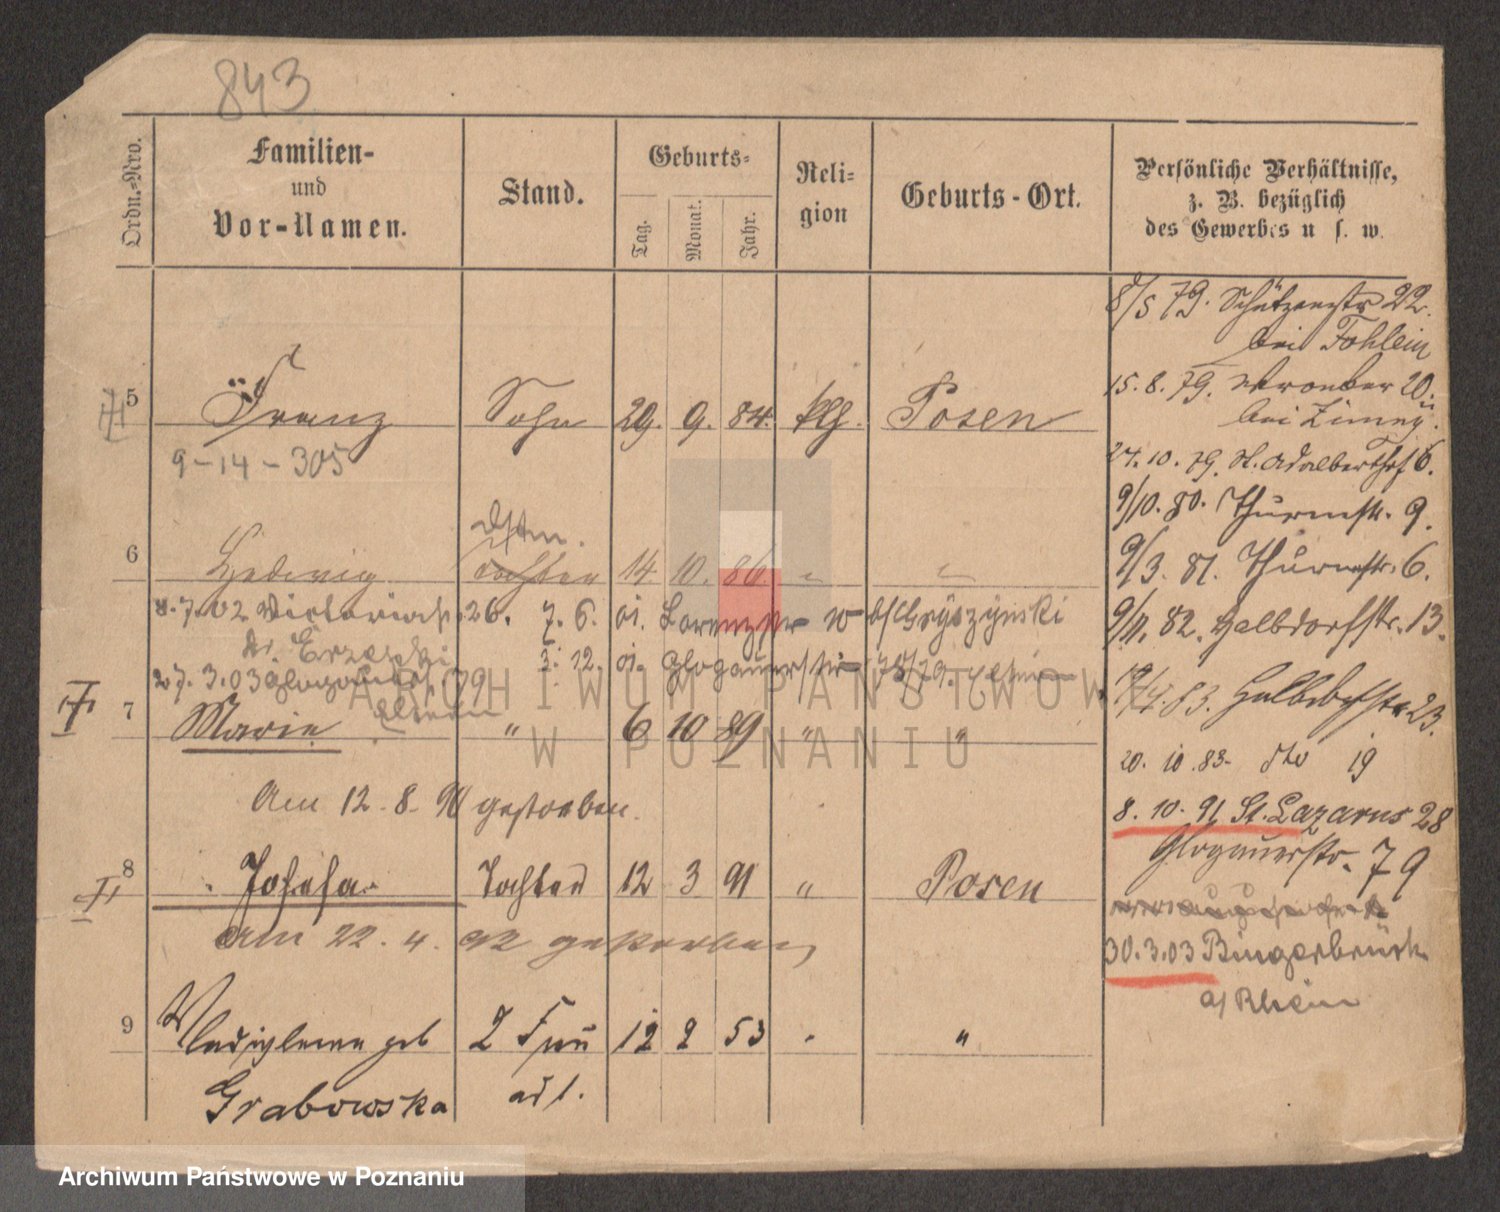 843
Ordn.-Nro.
Familien-
und
Vor-Namen.
Stand.
Geburts-
Tag.
Monat.
Jahr.
Reli-
gion
Geburts-Ort.
Persönliche Verhältnisse,
z. B. bezüglich
des Gewerbes u. s. w.
8/5 79. Schützenstr 22.
bei Fohlein
15. 8. 79. Wronker 20.
bei
5 Franz Sohn 29. 9. 84. kth. Posen
9-14-305
27. 10. 79. St. Adalberthof 6.
9/10. 80. Thurmstr. 9.
6 Hedwig 14 10. 86 " "
9/3. 81. Thurmstr. 6.
8.7.02 Victoriastr. 26. 7. 6. 01. Lorenzstr
9/11. 82. Halbdorfstr. 13.
27. 3. 03 Glogauerstr. 79 3. 12. 01. Glogauerstr 78/79.
Eltern
7 Marie " 6 10 89 " "
83. Halbdorfstr 23.
20. 10. 83. dto 19
Am 12. 8. 90 gestorben.
8. 10. 91 St. Lazarus 28
Glogauerstr. 79
8 Josefa Tochter 12 3 91 " Posen
am 22. 4. 92 gestorben
30. 3. 03 Bingerbrück
a/Rhein
9 Wladislawa geb 2 Frau 12 2 53 "
Grabowska
ARCHIWUM PAŃSTWOWE
W POZNANIU
Archiwum Państwowe w Poznaniu